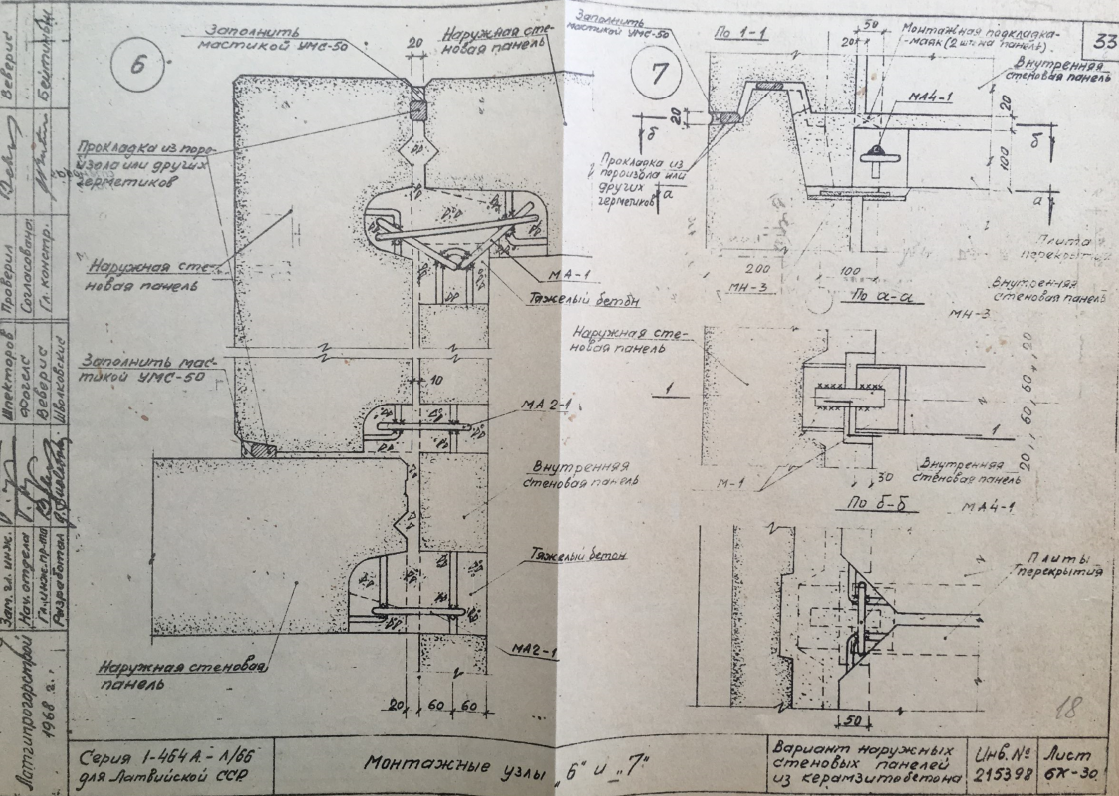 6
Заполнить
мастикой УМС-50
20
Наружная сте-
новая панель
Прокладка из поро-
изола или других
герметиков
Наружная сте-
новая панель
МА-1
Тяжелый бетон
Заполнить мас-
тикой УМС-50
10
МА2-1
Внутренняя
стеновая панель
Тяжелый бетон
Наружная стеновая
панель
МА2-1
20
60
60
7
Заполнить
мастикой УМС-50
По 1-1
50
20
Монтажная подкладка-
-маяк (2 шт. на панель)
33
Внутренняя
стеновая панель
МА4-1
20
20
б
б
100
Прокладка из
пороизола или
других
герметиков
а
а
Плита
перекрытия
200
МН-3
100
По а-а
Внутренняя
стеновая панель
МН-3
Наружная сте-
новая панель
1
1
20
60
60
20
М-1
30
Внутренняя
стеновая панель
По б-б
МА4-1
Плиты
перекрытия
50
18
Веверис
Бейтиньш
Проверил
Согласовано:
Гл. констр.
Шпекторов
Фогелс
Веверис
Шволковские
Зам. гл. инж.
Нач. отдела
Гл. инж. пр-та
Разработал
Латгипрогорстрой
1968 г.
Серия 1-464А-Л/66
для Латвийской ССР
Монтажные узлы „6" и „7"
Вариант наружных
стеновых панелей
из керамзитобетона
Инв. №
215398
Лист
6К-30